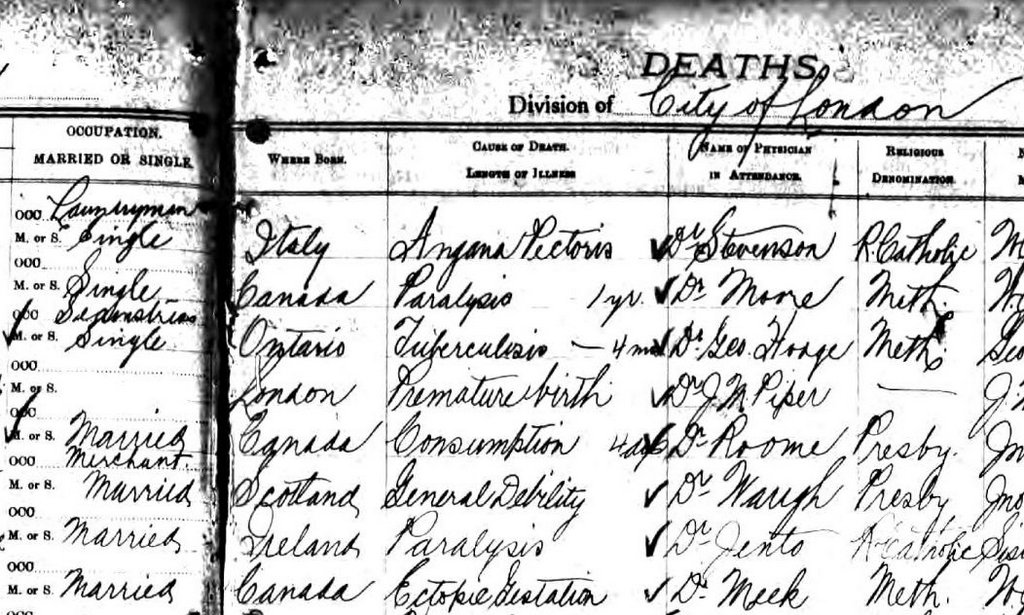 DEATHS
Division of City of London
OCCUPATION. MARRIED OR SINGLE
WHERE BORN.
CAUSE OF DEATH. LENGTH OF ILLNESS
NAME OF PHYSICIAN IN ATTENDANCE.
RELIGIOUS DENOMINATION.
OCC Laundryman
M. or S. Single Italy Angina Pectoris Dr Stevenson R. Catholic
OCC
M. or S. Single Canada Paralysis 1 yr. Dr Moore Meth.
OCC Seamstress
M. or S. Single Ontario Tuberculisis — 4 Dr Geo. Hodge Meth.
OCC
M. or S. London Premature birth Dr J. Piper —
OCC
M. or S. Married Canada Consumption Dr Roome Presby.
OCC Merchant.
M. or S. Married Scotland General Debility Dr Waugh Presby
OCC
M. or S. Married Ireland Paralysis Dr Jento R. Catholic
OCC
M. or S. Married Canada Ectopic Gestation Dr Meek Meth.
OCC